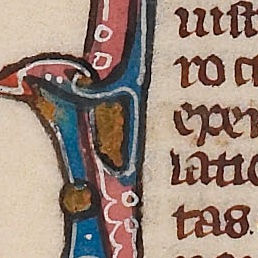 iuist
ro ct
eper
latio
tas.